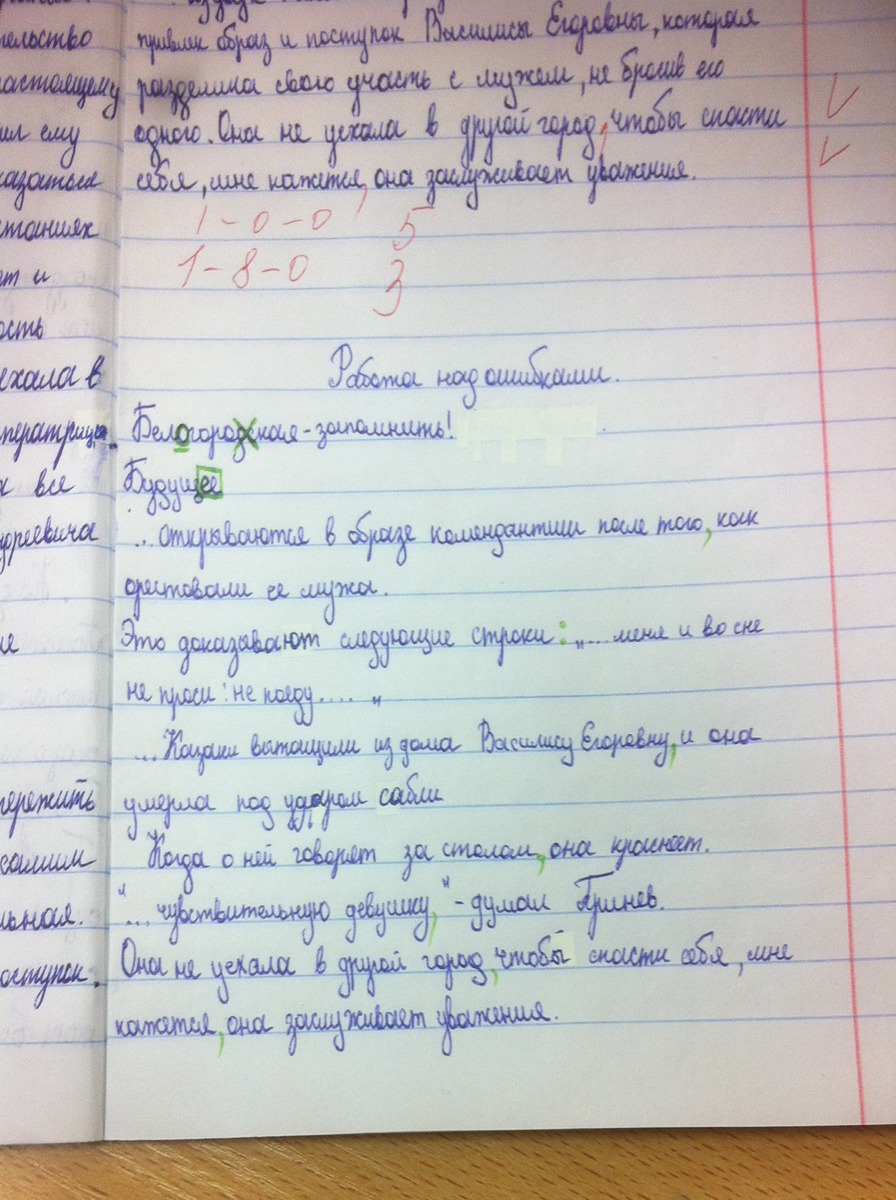 тельство
настоящему
ил ему
казаться
ет и
ость
ехала в
к все
дреевича
пережить
самим
льная.
поступок.
привлек образ и поступок Василисы Егоровны, которая
разделила свою участь с мужем, не бросив его
одного. Она не уехала в другой город, чтобы спасти
себя, мне кажется, она заслуживает уважения.
1-0-0 5
1-8-0 3
Работа над ошибками.
Белогородская - запомнить!
Будущее
...открываются в образе комендантши после того, как
арестовали ее мужа.
Это доказывают следующие строки: „... меня и во сне
не проси: не поеду.... „
...Казаки вытащили из дома Василису Егоровну, и она
умерла под ударом сабли
Когда о ней говорят за столом, она краснеет.
"... чувствительную девушку," - думал Гринев.
Она не уехала в другой город, чтобы спасти себя, мне
кажется, она заслуживает уважения.